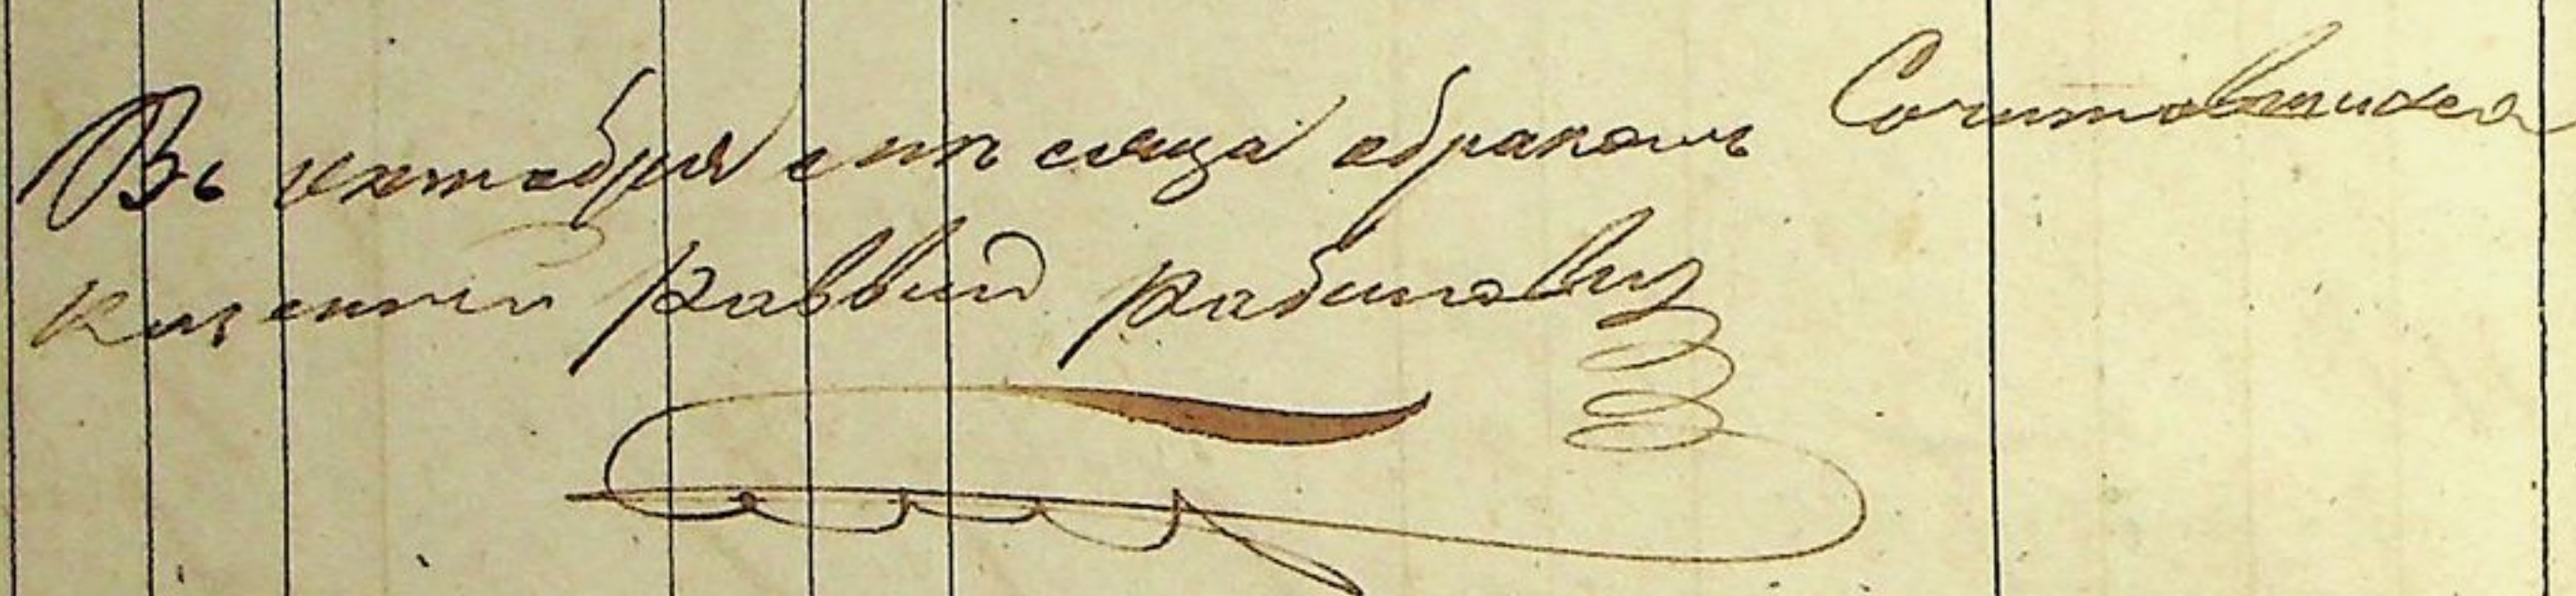 Въ октября мѣсяца абраком Сочитовшихся
Казенный Раввинъ Рабиновиц